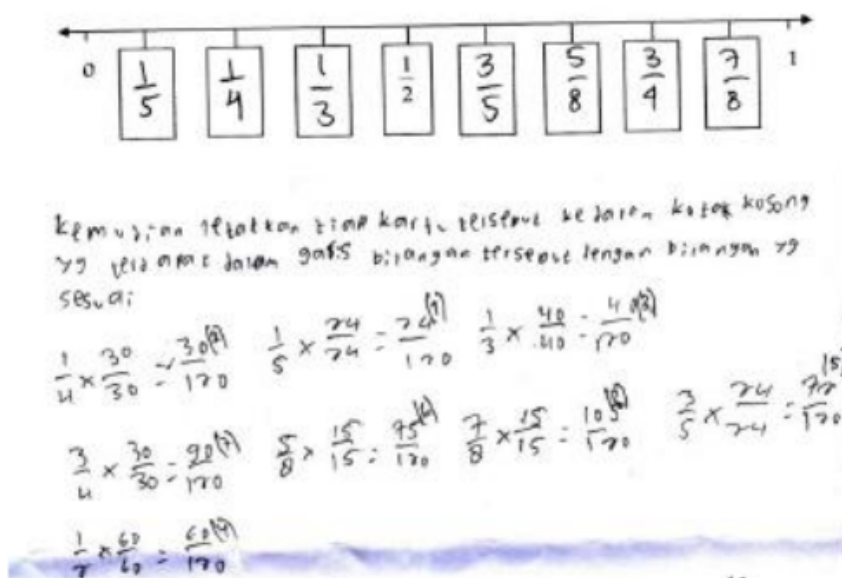 0 1/5 1/4 1/3 1/2 3/5 5/8 3/4 7/8 1
Kemudian letakkan tiap kartu tersebut ke dalam kotak kosong
yg terdapat dalam garis bilangan tersebut dengan bilangan yg
sesuai
1/4 × 30/30 = 30/120 (2) 1/5 × 24/24 = 24/120 (1) 1/3 × 40/40 = 40/120 (3)
3/4 × 30/30 = 90/120 (7) 5/8 × 15/15 = 75/120 (6) 7/8 × 15/15 = 105/120 (8) 3/5 × 24/24 = 72/120 (5)
1/2 × 60/60 = 60/120 (4)